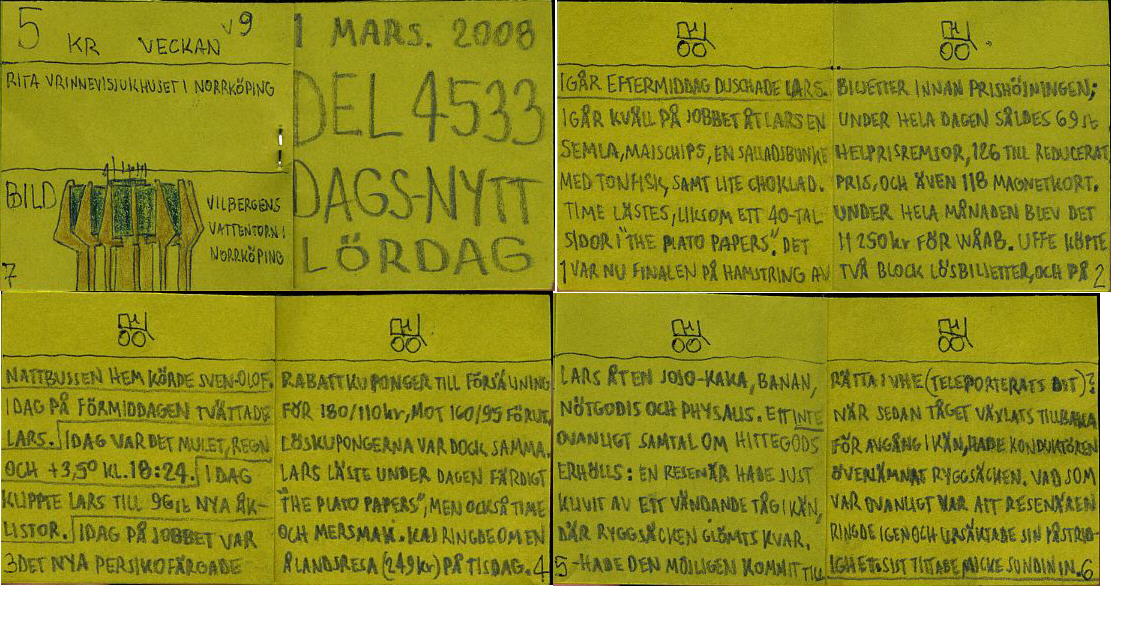 5 KR VECKAN V9
RITA VRINNEVISJUKHUSET I NORRKÖPING
BILD
VILBERGENS
VATTENTORN I
NORRKÖPING
7
1 MARS. 2008
DEL 4533
DAGS-NYTT
LÖRDAG
IGÅR EFTERMIDDAG DUSCHADE LARS.
IGÅR KVÄLL PÅ JOBBET ÅT LARS EN
SEMLA, MAJSCHIPS, EN SALLADSBUNKE
MED TONFISK, SAMT LITE CHOKLAD.
TIME LÄSTES, LIKSOM ETT 40-TAL
SIDOR I "THE PLATO PAPERS". DET
1 VAR NU FINALEN PÅ HAMSTRING AV
BILJETTER INNAN PRISHÖJNINGEN;
UNDER HELA DAGEN SÅLDES 69 st
HELPRISREMSOR, 126 TILL REDUCERAT
PRIS, OCH ÄVEN 118 MAGNETKORT.
UNDER HELA MÅNADEN BLEV DET
11 250 kr FÖR WÅAB. UFFE KÖPTE
TVÅ BLOCK LÖSBILJETTER, OCH PÅ 2
NATTBUSSEN HEM KÖRDE SVEN-OLOF.
IDAG PÅ FÖRMIDDAGEN TVÄTTADE
LARS. IDAG VAR DET MULET, REGN
OCH +3,5° KL. 18:24. IDAG
KLIPPTE LARS TILL 96 st NYA ÅK-
LISTOR. IDAG PÅ JOBBET VAR
3 DET NYA PERSIKOFÄRGADE
RABATTKUPONGER TILL FÖRSÄLJNING
FÖR 180/110 kr, MOT 160/95 FÖRUT,
LÖSKUPONGERNA VAR DOCK SAMMA.
LARS LÄSTE UNDER DAGEN FÄRDIGT
"THE PLATO PAPERS", MEN OCKSÅ TIME
OCH MERSMAK. KAJ RINGDE OM EN
ÅLANDSRESA (249 kr) PÅ TISDAG. 4
LARS ÅT EN JOJO-KAKA, BANAN,
NÖTGODIS OCH PHYSALIS. ETT INTE
OVANLIGT SAMTAL OM HITTEGODS
ERHÖLLS: EN RESENÄR HADE JUST
KLIVIT AV ETT VÄNDANDE TÅG I KÄN,
DÄR RYGGSÄCKEN GLÖMTS KVAR.
5 -HADE DEN MÖJLIGEN KOMMIT TILL
RÄTTA I VHE (TELEPORTERATS DIT)?
NÄR SEDAN TÅGET VÄXLATS TILLBAKA
FÖR AVGÅNG I KÄN, HADE KONDUKTÖREN
ÖVERLÄMNAT RYGGSÄCKEN. VAD SOM
VAR OVANLIGT VAR ATT RESENÄREN
RINGDE IGEN OCH URSÄKTADE SIN PÅSTRID-
IGHET. SIST TITTADE MICKE SUNDIN IN. 6